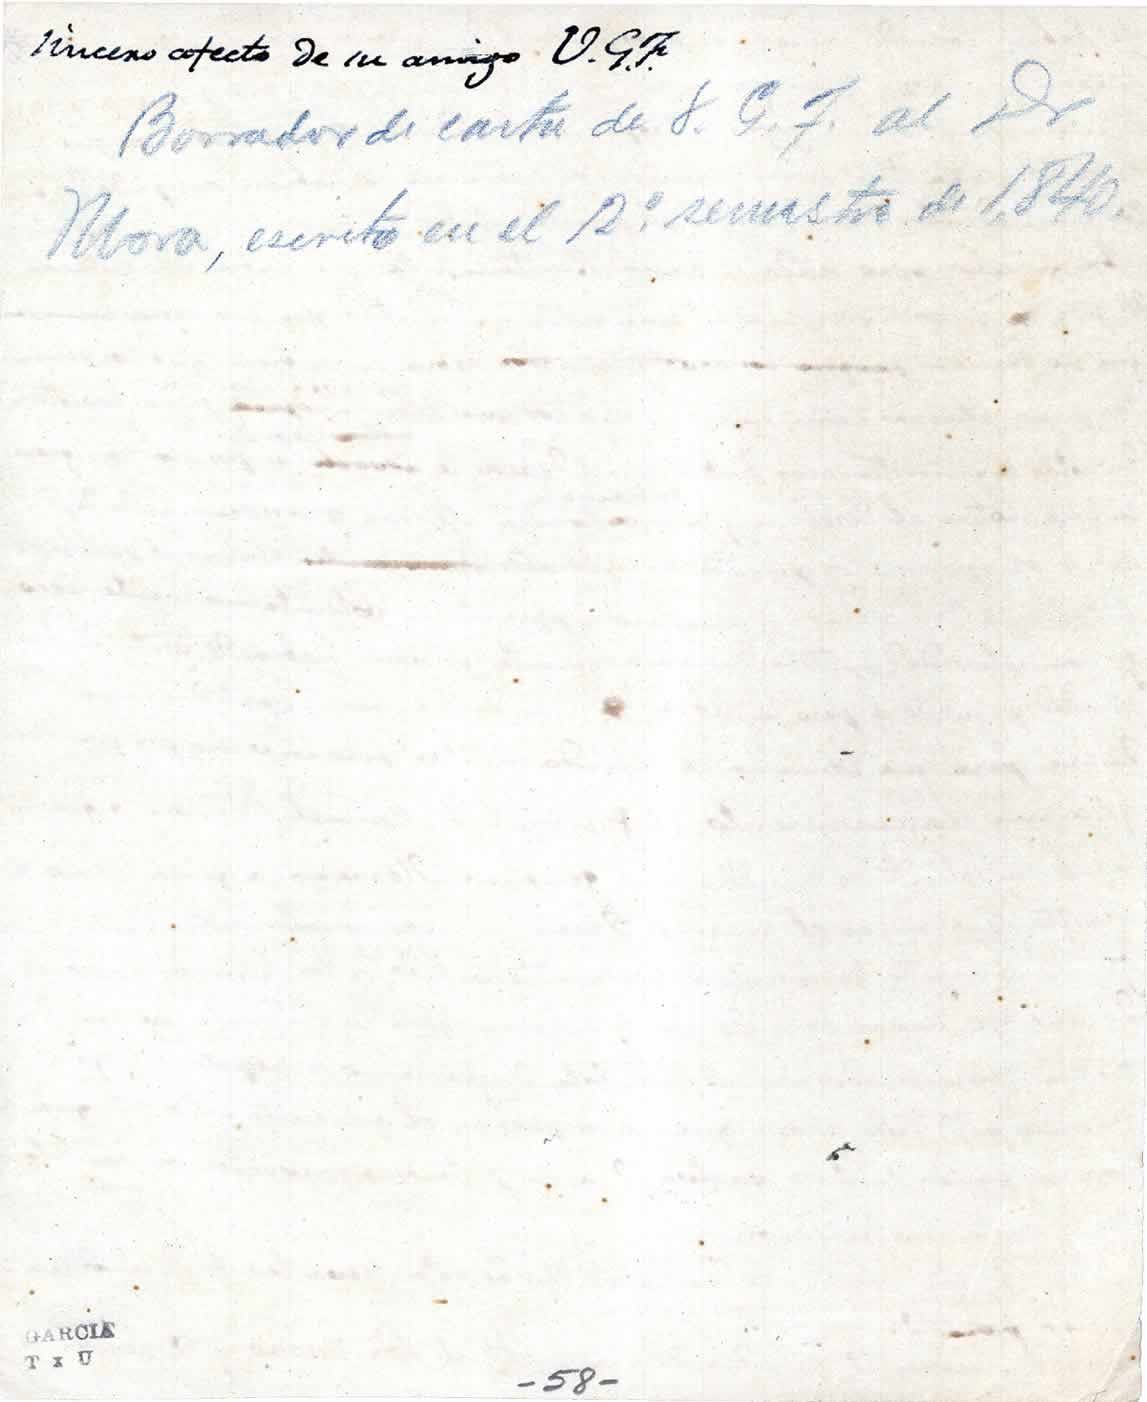 sincero afecto de su amigo V.G.F.
Borrador de carta de V. G. F. al Dr
Mora, escrito en el 2.º semestre de 1,840.
GARCIA
T x U
-58-